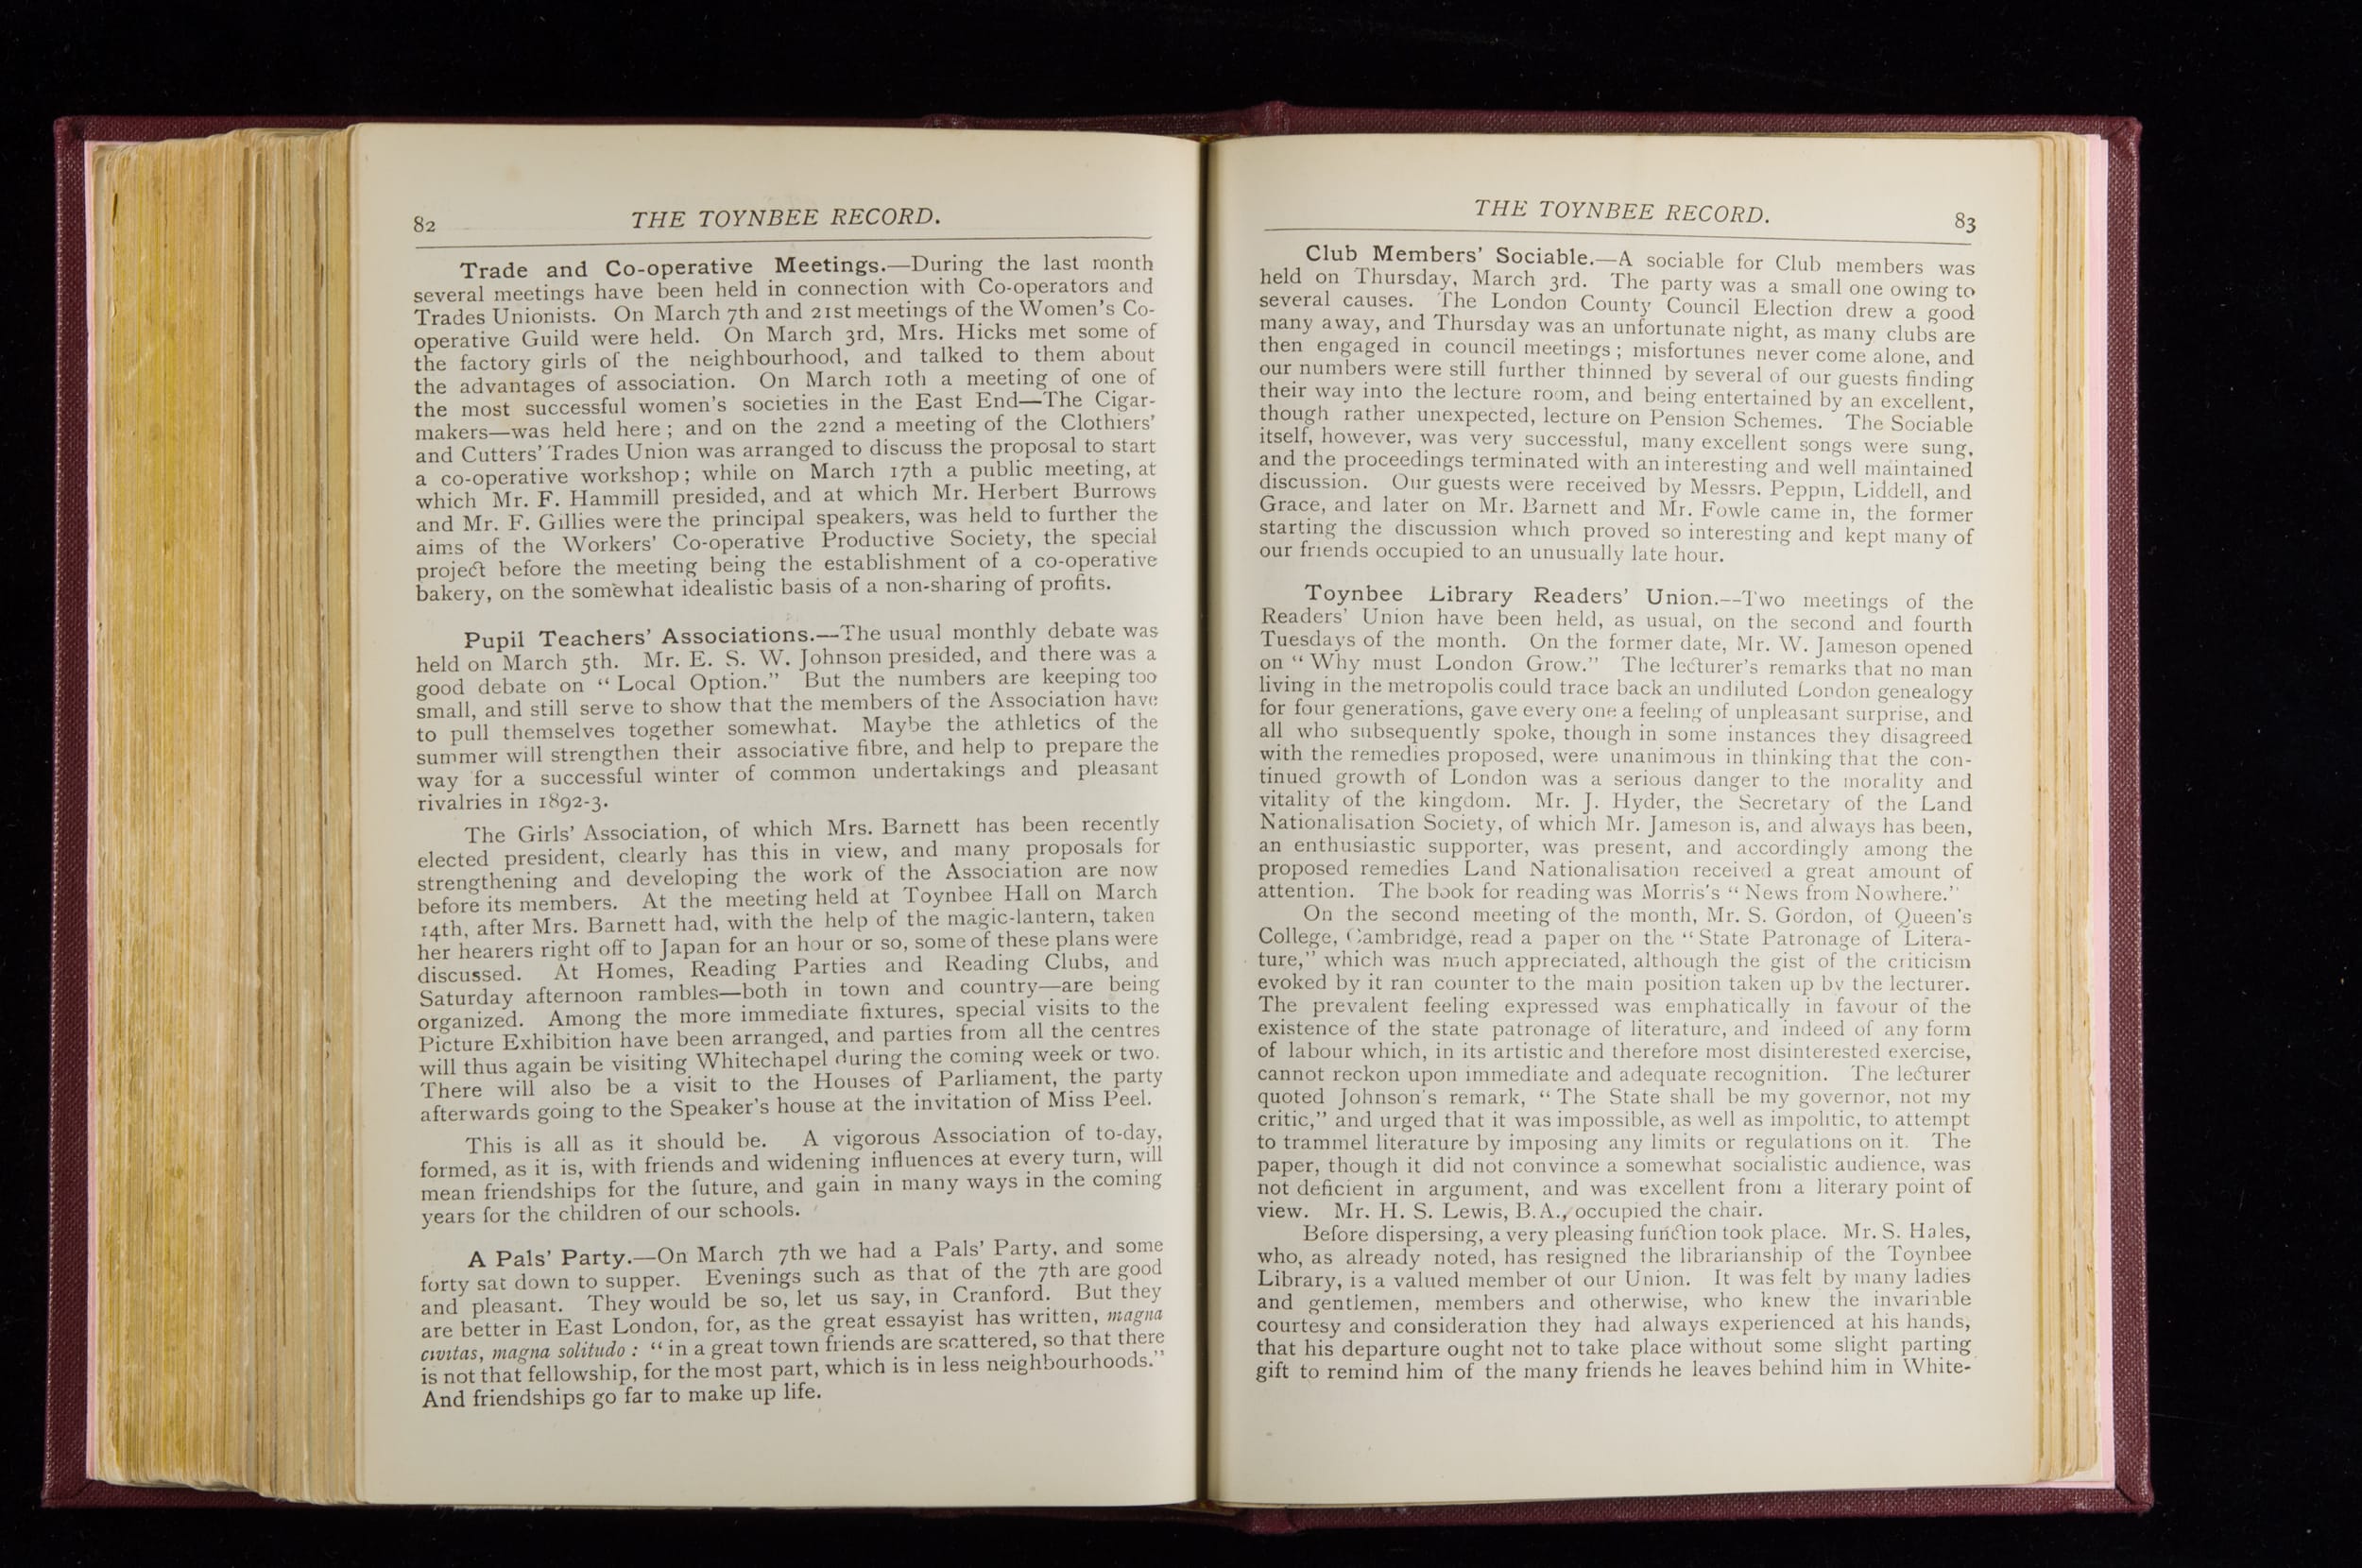 82
THE TOYNBEE RECORD.
Trade and Co-operative Meetings.—During the last month
several meetings have been held in connection with Co-operators and
Trades Unionists. On March 7th and 21st meetings of the Women's Co-
operative Guild were held. On March 3rd, Mrs. Hicks met some of
the factory girls of the neighbourhood, and talked to them about
the advantages of association. On March 10th a meeting of one of
the most successful women's societies in the East End—The Cigar-
makers—was held here; and on the 22nd a meeting of the Clothiers'
and Cutters' Trades Union was arranged to discuss the proposal to start
a co-operative workshop; while on March 17th a public meeting, at
which Mr. F. Hammill presided, and at which Mr. Herbert Burrows
and Mr. F. Gillies were the principal speakers, was held to further the
aims of the Workers' Co-operative Productive Society, the special
project before the meeting being the establishment of a co-operative
bakery, on the somewhat idealistic basis of a non-sharing of profits.
Pupil Teachers' Associations.—The usual monthly debate was
held on March 5th. Mr. E. S. W. Johnson presided, and there was a
good debate on "Local Option." But the numbers are keeping too
small, and still serve to show that the members of the Association have
to pull themselves together somewhat. Maybe the athletics of the
summer will strengthen their associative fibre, and help to prepare the
way for a successful winter of common undertakings and pleasant
rivalries in 1892-3.
The Girls' Association, of which Mrs. Barnett has been recently
elected president, clearly has this in view, and many proposals for
strengthening and developing the work of the Association are now
before its members. At the meeting held at Toynbee Hall on March
14th, after Mrs. Barnett had, with the help of the magic-lantern, taken
her hearers right off to Japan for an hour or so, some of these plans were
discussed. At Homes, Reading Parties and Reading Clubs, and
Saturday afternoon rambles—both in town and country—are being
organized. Among the more immediate fixtures, special visits to the
Picture Exhibition have been arranged, and parties from all the centres
will thus again be visiting Whitechapel during the coming week or two.
There will also be a visit to the Houses of Parliament, the party
afterwards going to the Speaker's house at the invitation of Miss Peel.
This is all as it should be. A vigorous Association of to-day,
formed, as it is, with friends and widening influences at every turn, will
mean friendships for the future, and gain in many ways in the coming
years for the children of our schools.
A Pals' Party.—On March 7th we had a Pals' Party, and some
forty sat down to supper. Evenings such as that of the 7th are good
and pleasant. They would be so, let us say, in Cranford. But they
are better in East London, for, as the great essayist has written, magna
civitas, magna solitudo: "in a great town friends are scattered, so that there
is not that fellowship, for the most part, which is in less neighbourhoods."
And friendships go far to make up life.
THE TOYNBEE RECORD.
83
Club Members' Sociable.—A sociable for Club members was
held on Thursday, March 3rd. The party was a small one owing to
several causes. The London County Council Election drew a good
many away, and Thursday was an unfortunate night, as many clubs are
then engaged in council meetings; misfortunes never come alone, and
our numbers were still further thinned by several of our guests finding
their way into the lecture room, and being entertained by an excellent,
though rather unexpected, lecture on Pension Schemes. The Sociable
itself, however, was very successful, many excellent songs were sung,
and the proceedings terminated with an interesting and well maintained
discussion. Our guests were received by Messrs. Peppin, Liddell, and
Grace, and later on Mr. Barnett and Mr. Fowle came in, the former
starting the discussion which proved so interesting and kept many of
our friends occupied to an unusually late hour.
Toynbee Library Readers' Union.--Two meetings of the
Readers' Union have been held, as usual, on the second and fourth
Tuesdays of the month. On the former date, Mr. W. Jameson opened
on "Why must London Grow." The lecturer's remarks that no man
living in the metropolis could trace back an undiluted London genealogy
for four generations, gave every one a feeling of unpleasant surprise, and
all who subsequently spoke, though in some instances they disagreed
with the remedies proposed, were unanimous in thinking that the con-
tinued growth of London was a serious danger to the morality and
vitality of the kingdom. Mr. J. Hyder, the Secretary of the Land
Nationalisation Society, of which Mr. Jameson is, and always has been,
an enthusiastic supporter, was present, and accordingly among the
proposed remedies Land Nationalisation received a great amount of
attention. The book for reading was Morris's "News from Nowhere."
On the second meeting of the month, Mr. S. Gordon, of Queen's
College, Cambridge, read a paper on the "State Patronage of Litera-
ture," which was much appreciated, although the gist of the criticism
evoked by it ran counter to the main position taken up by the lecturer.
The prevalent feeling expressed was emphatically in favour of the
existence of the state patronage of literature, and indeed of any form
of labour which, in its artistic and therefore most disinterested exercise,
cannot reckon upon immediate and adequate recognition. The lecturer
quoted Johnson's remark, "The State shall be my governor, not my
critic," and urged that it was impossible, as well as impolitic, to attempt
to trammel literature by imposing any limits or regulations on it. The
paper, though it did not convince a somewhat socialistic audience, was
not deficient in argument, and was excellent from a literary point of
view. Mr. H. S. Lewis, B.A., occupied the chair.
Before dispersing, a very pleasing function took place. Mr. S. Hales,
who, as already noted, has resigned the librarianship of the Toynbee
Library, is a valued member of our Union. It was felt by many ladies
and gentlemen, members and otherwise, who knew the invariable
courtesy and consideration they had always experienced at his hands,
that his departure ought not to take place without some slight parting
gift to remind him of the many friends he leaves behind him in White-